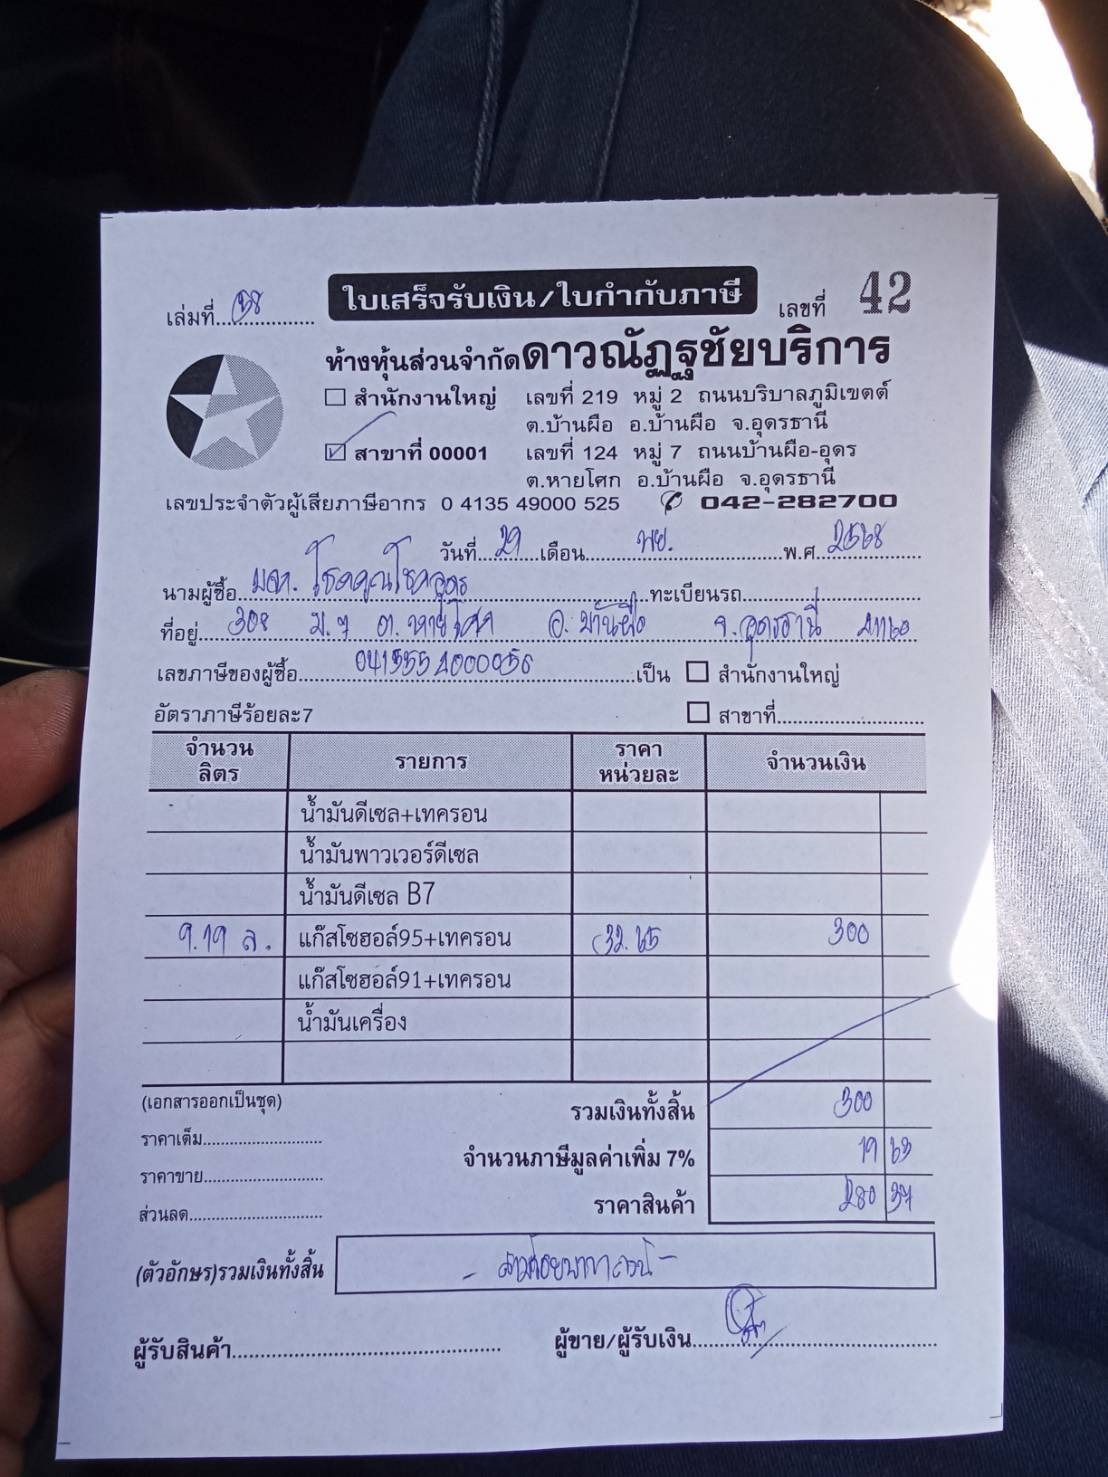 เล่มที่ 58 ใบเสร็จรับเงิน/ใบกำกับภาษี เลขที่ 42
ห้างหุ้นส่วนจำกัดดาวณัฏฐชัยบริการ
สำนักงานใหญ่ เลขที่ 219 หมู่ 2 ถนนบริบาลภูมิเขตต์
ต.บ้านผือ อ.บ้านผือ จ.อุดรธานี
สาขาที่ 00001 เลขที่ 124 หมู่ 7 ถนนบ้านผือ-อุดร
ต.หายโศก อ.บ้านผือ จ.อุดรธานี
เลขประจำตัวผู้เสียภาษีอากร 0 4135 49000 525 042-282700
วันที่ 29 เดือน พย. พ.ศ. 2568
นามผู้ซื้อ โชคคูณโชคอุดร ทะเบียนรถ
ที่อยู่ 308 ม.7 ต.หายโศก อ.บ้านผือ จ.อุดรธานี 41160
เลขภาษีของผู้ซื้อ 0415554000056 เป็น สำนักงานใหญ่
อัตราภาษีร้อยละ7 สาขาที่
จำนวน ลิตร รายการ ราคา หน่วยละ จำนวนเงิน
น้ำมันดีเซล+เทครอน
น้ำมันพาวเวอร์ดีเซล
น้ำมันดีเซล B7
9.19 ล. แก๊สโซฮอล์95+เทครอน 32.65 300
แก๊สโซฮอล์91+เทครอน
น้ำมันเครื่อง
(เอกสารออกเป็นชุด) รวมเงินทั้งสิ้น 300
ราคาเต็ม
จำนวนภาษีมูลค่าเพิ่ม 7% 19 63
ราคาขาย
ราคาสินค้า 280 37
ส่วนลด
(ตัวอักษร)รวมเงินทั้งสิ้น - สามร้อยบาทถ้วน -
ผู้รับสินค้า ผู้ขาย/ผู้รับเงิน